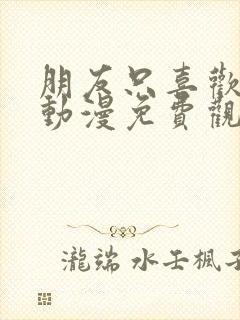 朋友只喜歡
動漫免費觀
瀧端 水壬楓子